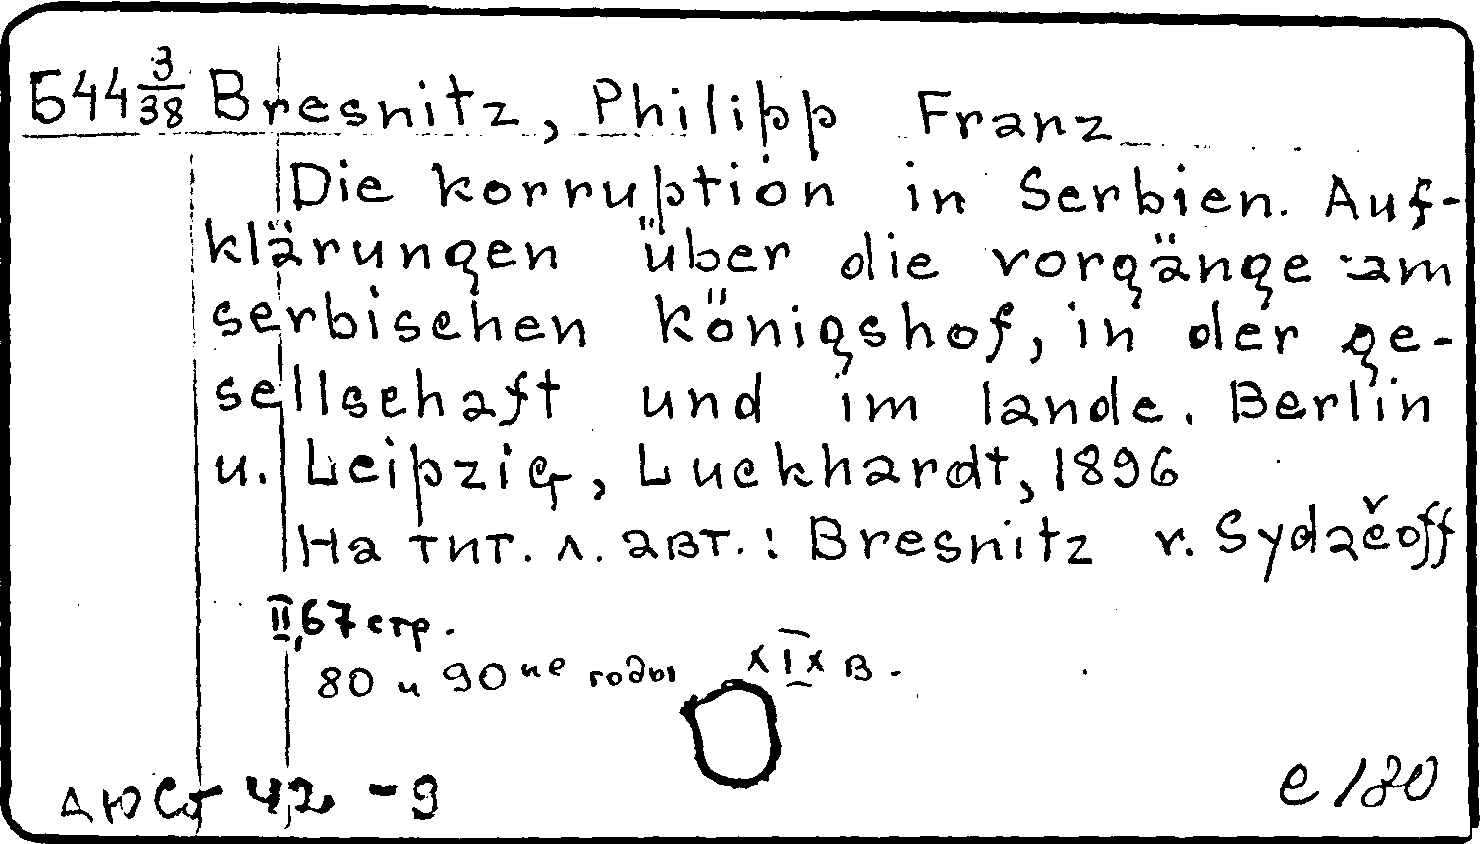 Б44 3/38 Bresnitz, Philipp Franz
Die korruption in Serbien. Auf-
klärungen über die vorgänge am
serbischen königshof, in der ge-
sellschaft und im lande. Berlin
u. Leipzig, Luckhardt, 1896
На тит. л. авт.: Bresnitz v. Sydačoff
II, 67 стр.
80 и 90 ые годы XIX в.
42 - 9
e/80